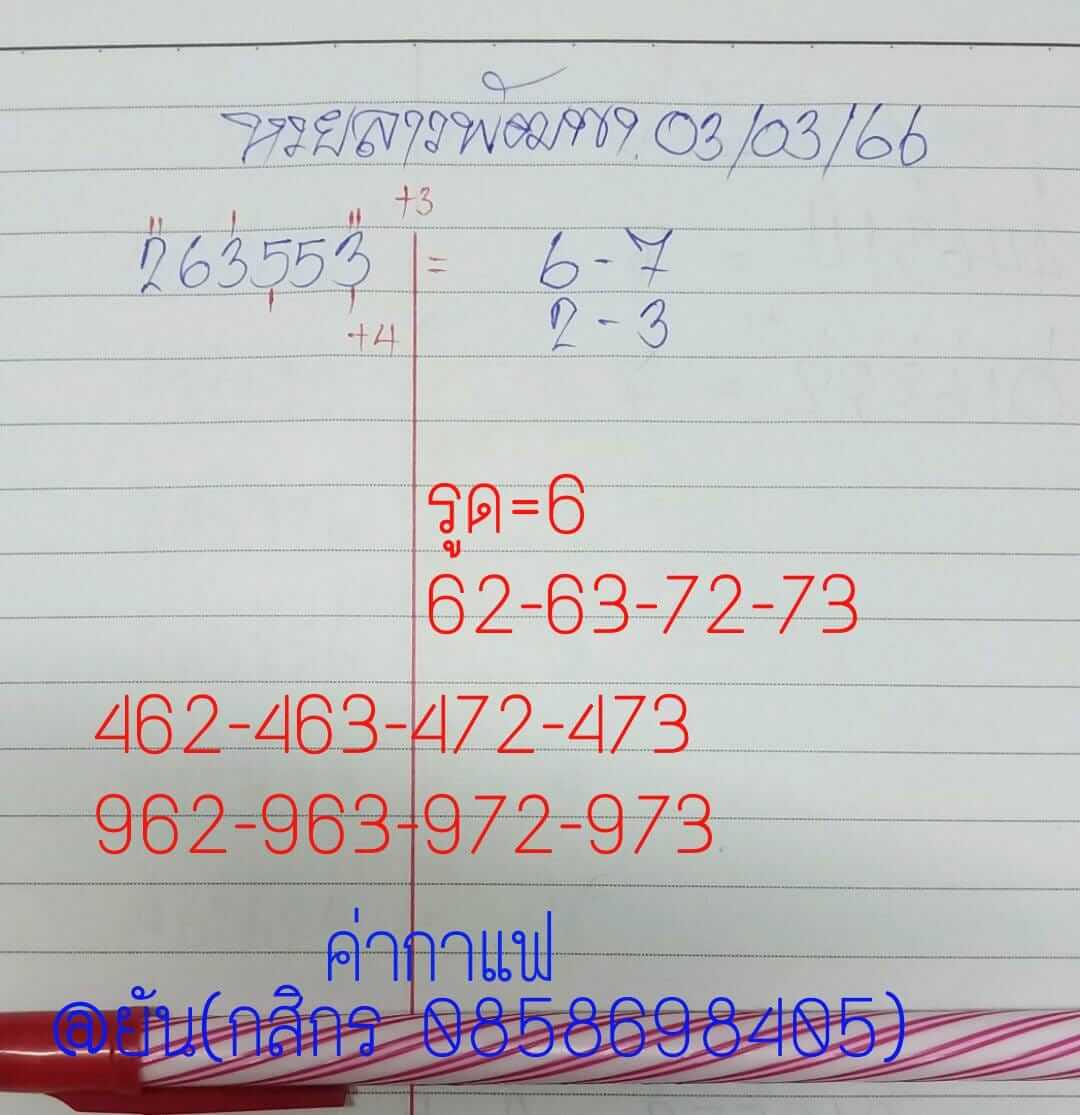 หวยลาวพัฒนา 03/03/66
+3
263553 = 6-7
2-3
+4
รูด=6
62-63-72-73
462-463-472-473
962-963-972-973
ค่ากาแฟ
@ยัน(กสิกร 0858698405)